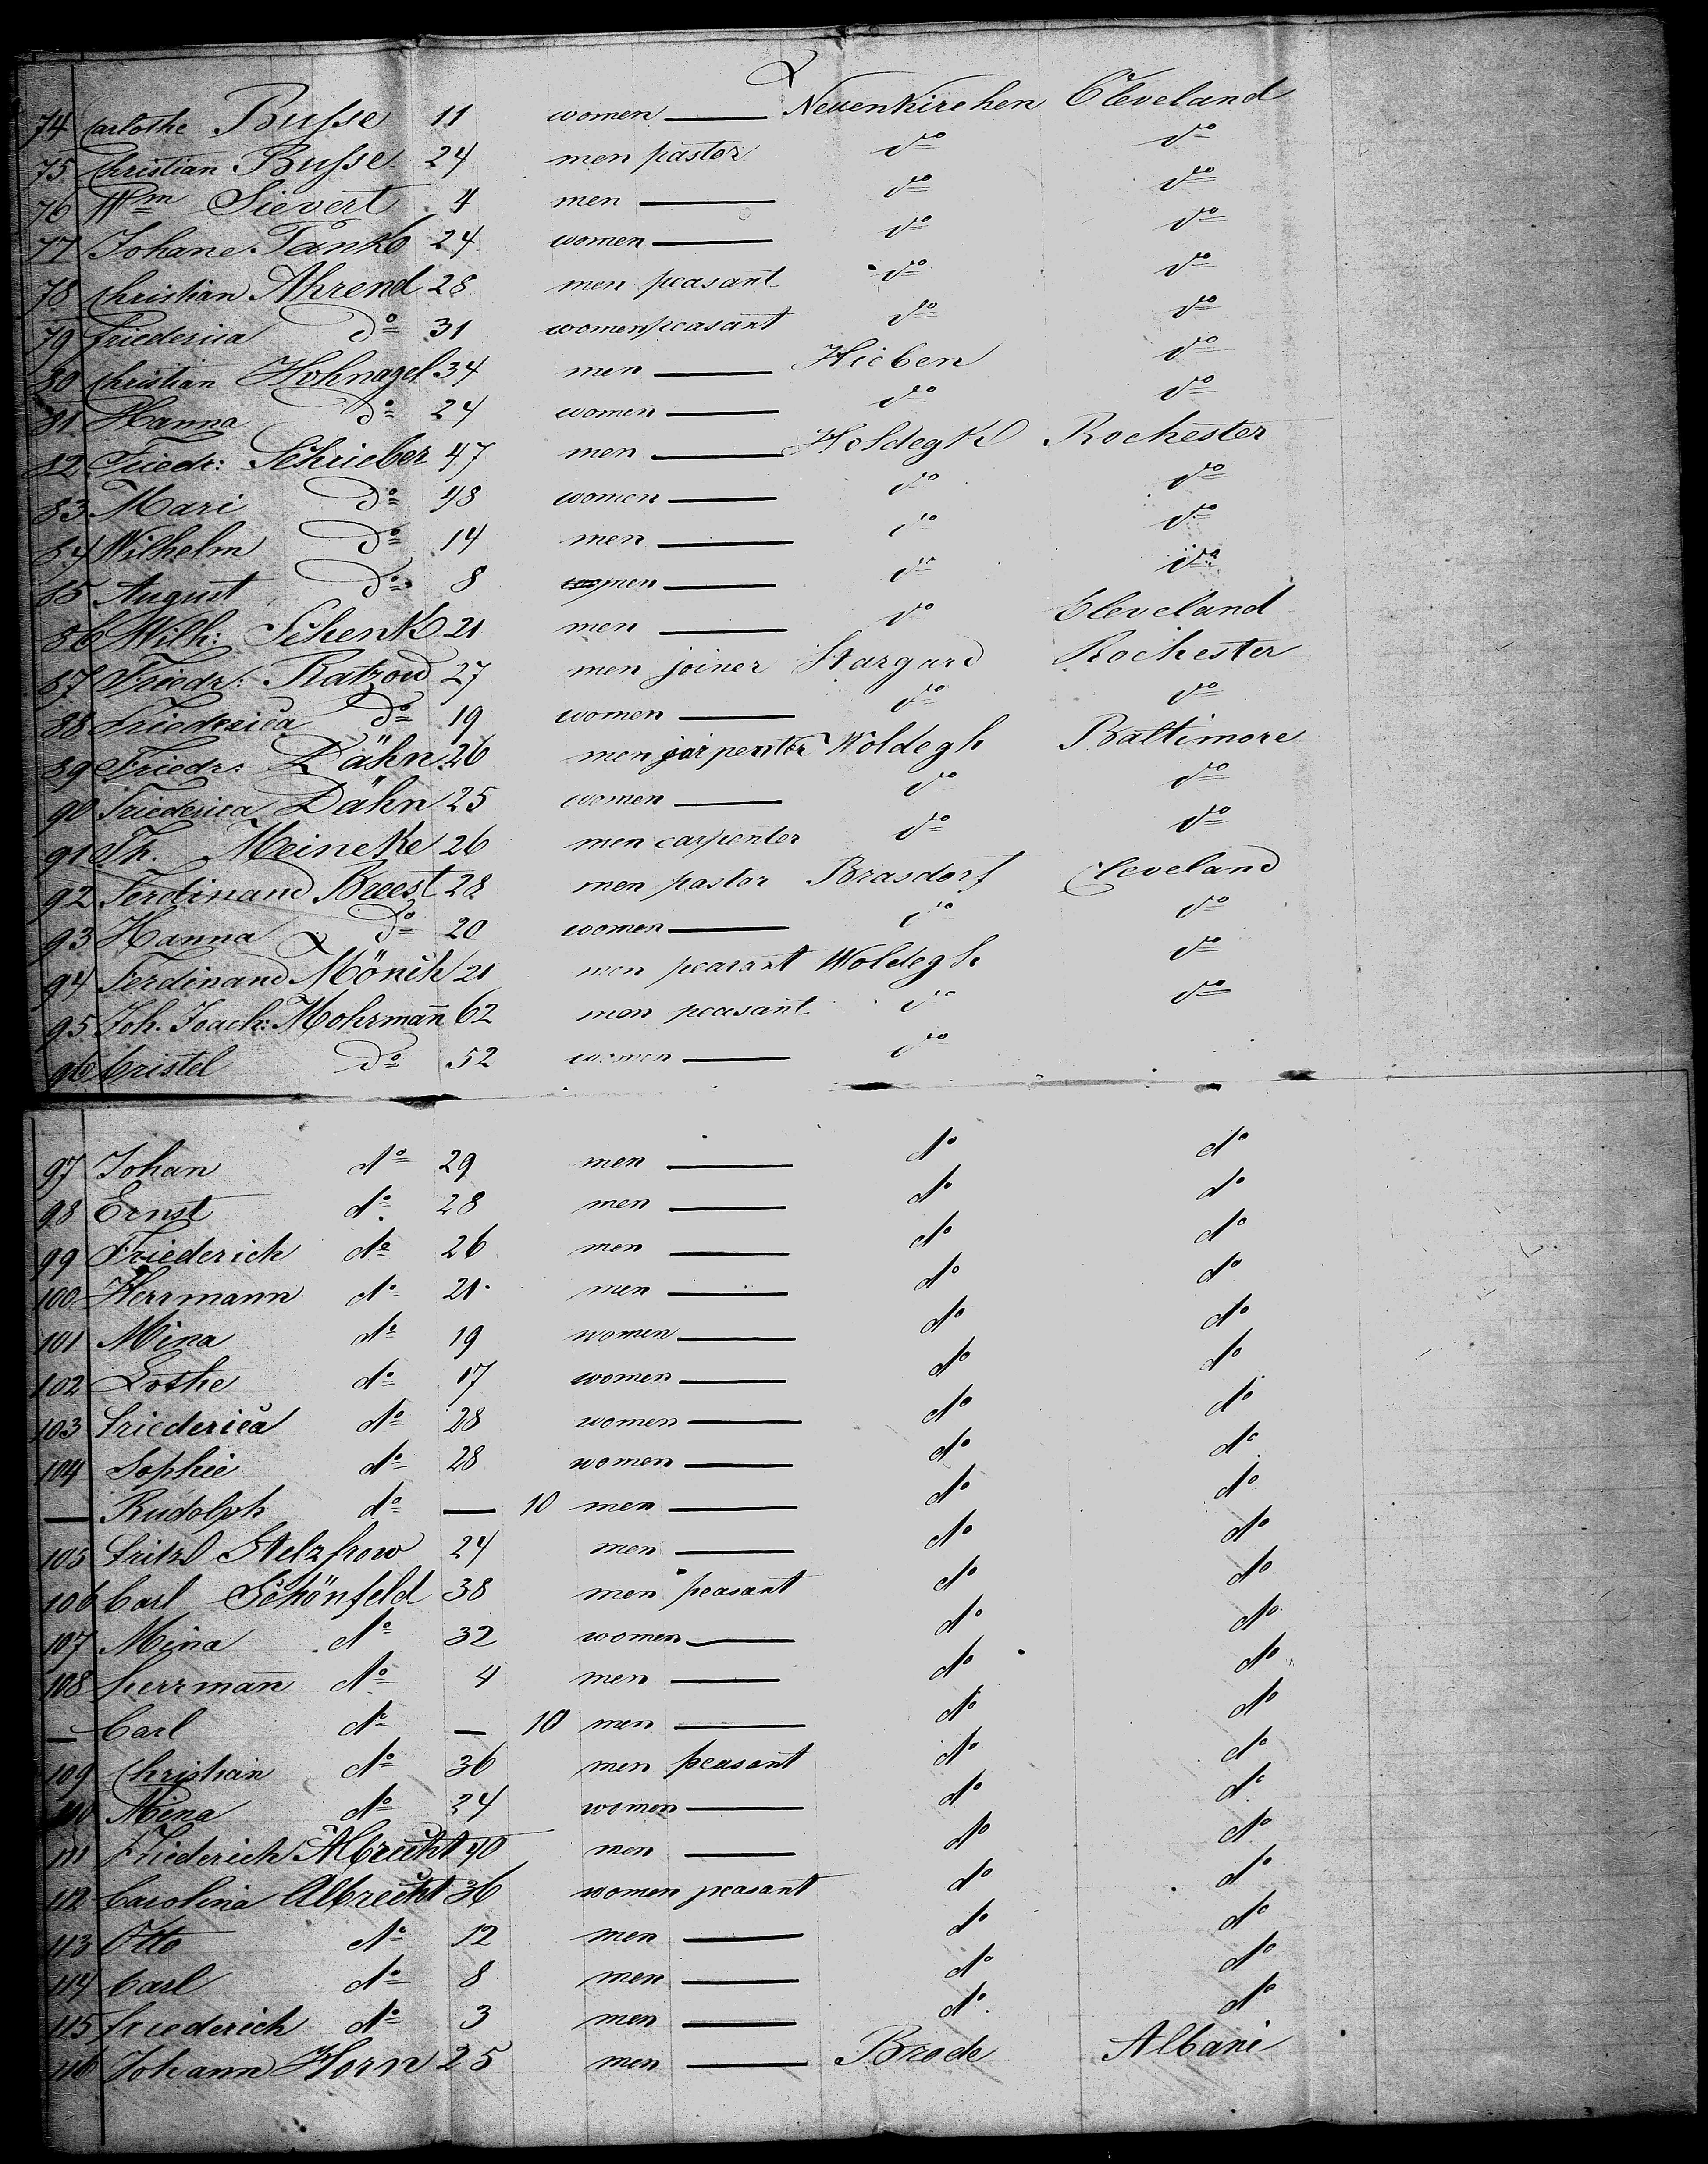 74 Carlothe Busse 11 women — Neuenkirchen Cleveland
75 Christian Busse 24 men pastor do do
76 Wm Sievert 4 men — do do
77 Johane Tank 24 women — do do
78 Christian Ahrend 28 men peasant do do
79 friederica do 31 women peasant do do
80 Christian Hohnagel 34 men — Hieben do
81 Hanna do 24 women — do do
82 Friedr: Schrieber 47 men — Holdegk Rochester
83 Mari do 48 women — do do
84 Wilhelm do 14 men — do do
85 August do 8 men — do do
86 Wilh: Schenk 21 men — do Cleveland
87 Friedr: Ratzow 27 men joiner Stargard Rochester
88 Friederica do 19 women — do do
89 Friedr: Dähn 26 men carpenter Woldegh Baltimore
90 Friederica Dähn 25 women — do do
91 Fh. Meincke 26 men carpenter do do
92 Ferdinand Breest 28 men pastor Brasdorf Cleveland
93 Hanna do 20 women — do do
94 Ferdinand Mönch 21 men peasant Woldegh do
95 Joh. Joach: Mohrmañ 62 men peasant do do
96 Cristel do 52 women — do
97 Johan do 29 men — do do
98 Ernst do 28 men — do do
99 Friederich do 26 men — do do
100 Herrmann do 21 men — do do
101 Mina do 19 women — do do
102 Lothe do 17 women — do do
103 friederica do 28 women — do do
104 Sophie do 28 women — do do
— Rudolph do — 10 men — do do
105 fritz Stelzfrow 24 men — do do
106 Carl Schönfeld 38 men peasant do do
107 Mina do 32 women — do do
108 herrmañ do 4 men — do do
— Carl do — 10 men — do do
109 Christian do 36 men peasant do do
110 Mina do 24 women — do do
111 Friederich Albrecht 40 men — do do
112 Carolina Albrecht 36 women peasant do do
113 Otto do 12 men — do do
114 Carl do 8 men — do do
115 friederich do 3 men — do do
116 Johann Horn 25 men — Brode Albani